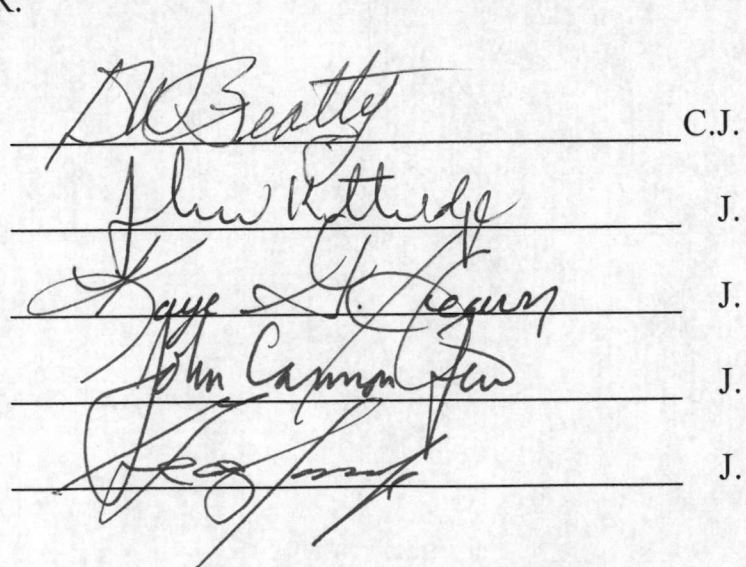 R.
DWBeatty C.J.
John Kittredge J.
Kaye G. Hearn J.
John Cannon Few J.
J.